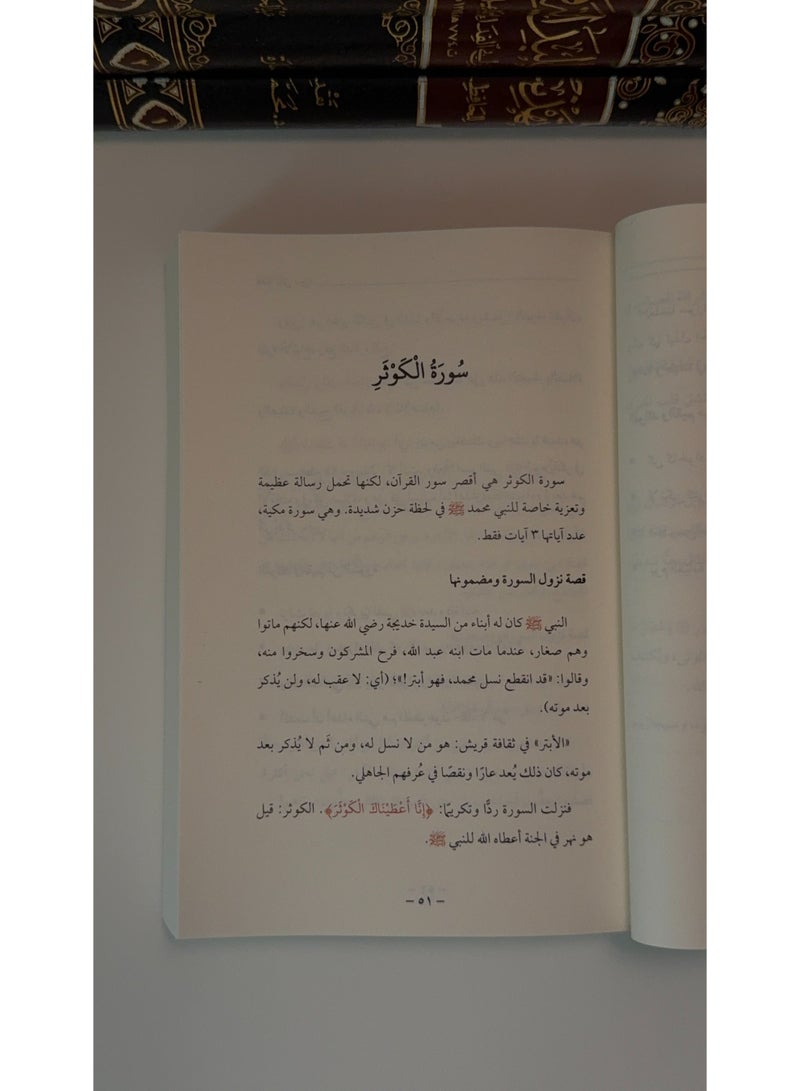 سُورَةُ الْكَوْثَرِ
سورة الكوثر هي أقصر سور القرآن، لكنها تحمل رسالة عظيمة
وتعزية خاصة للنبي محمد ﷺ في لحظة حزن شديدة. وهي سورة مكية،
عدد آياتها ٣ آيات فقط.
قصة نزول السورة ومضمونها
النبي ﷺ كان له أبناء من السيدة خديجة رضي الله عنها، لكنهم ماتوا
وهم صغار، عندما مات ابنه عبد الله، فرح المشركون وسخروا منه،
وقالوا: «قد انقطع نسل محمد، فهو أبتر!»؛ (أي: لا عقب له، ولن يُذكر
بعد موته).
«الأبتر» في ثقافة قريش: هو من لا نسل له، ومن ثَم لا يُذكر بعد
موته، كان ذلك يُعد عارًا ونقصًا في عُرفهم الجاهلي.
فنزلت السورة ردًّا وتكريمًا: ﴿إِنَّا أَعْطَيْنَاكَ الْكَوْثَرَ﴾. الكوثر: قيل
هو نهر في الجنة أعطاه الله للنبي ﷺ.
– ٥١ –